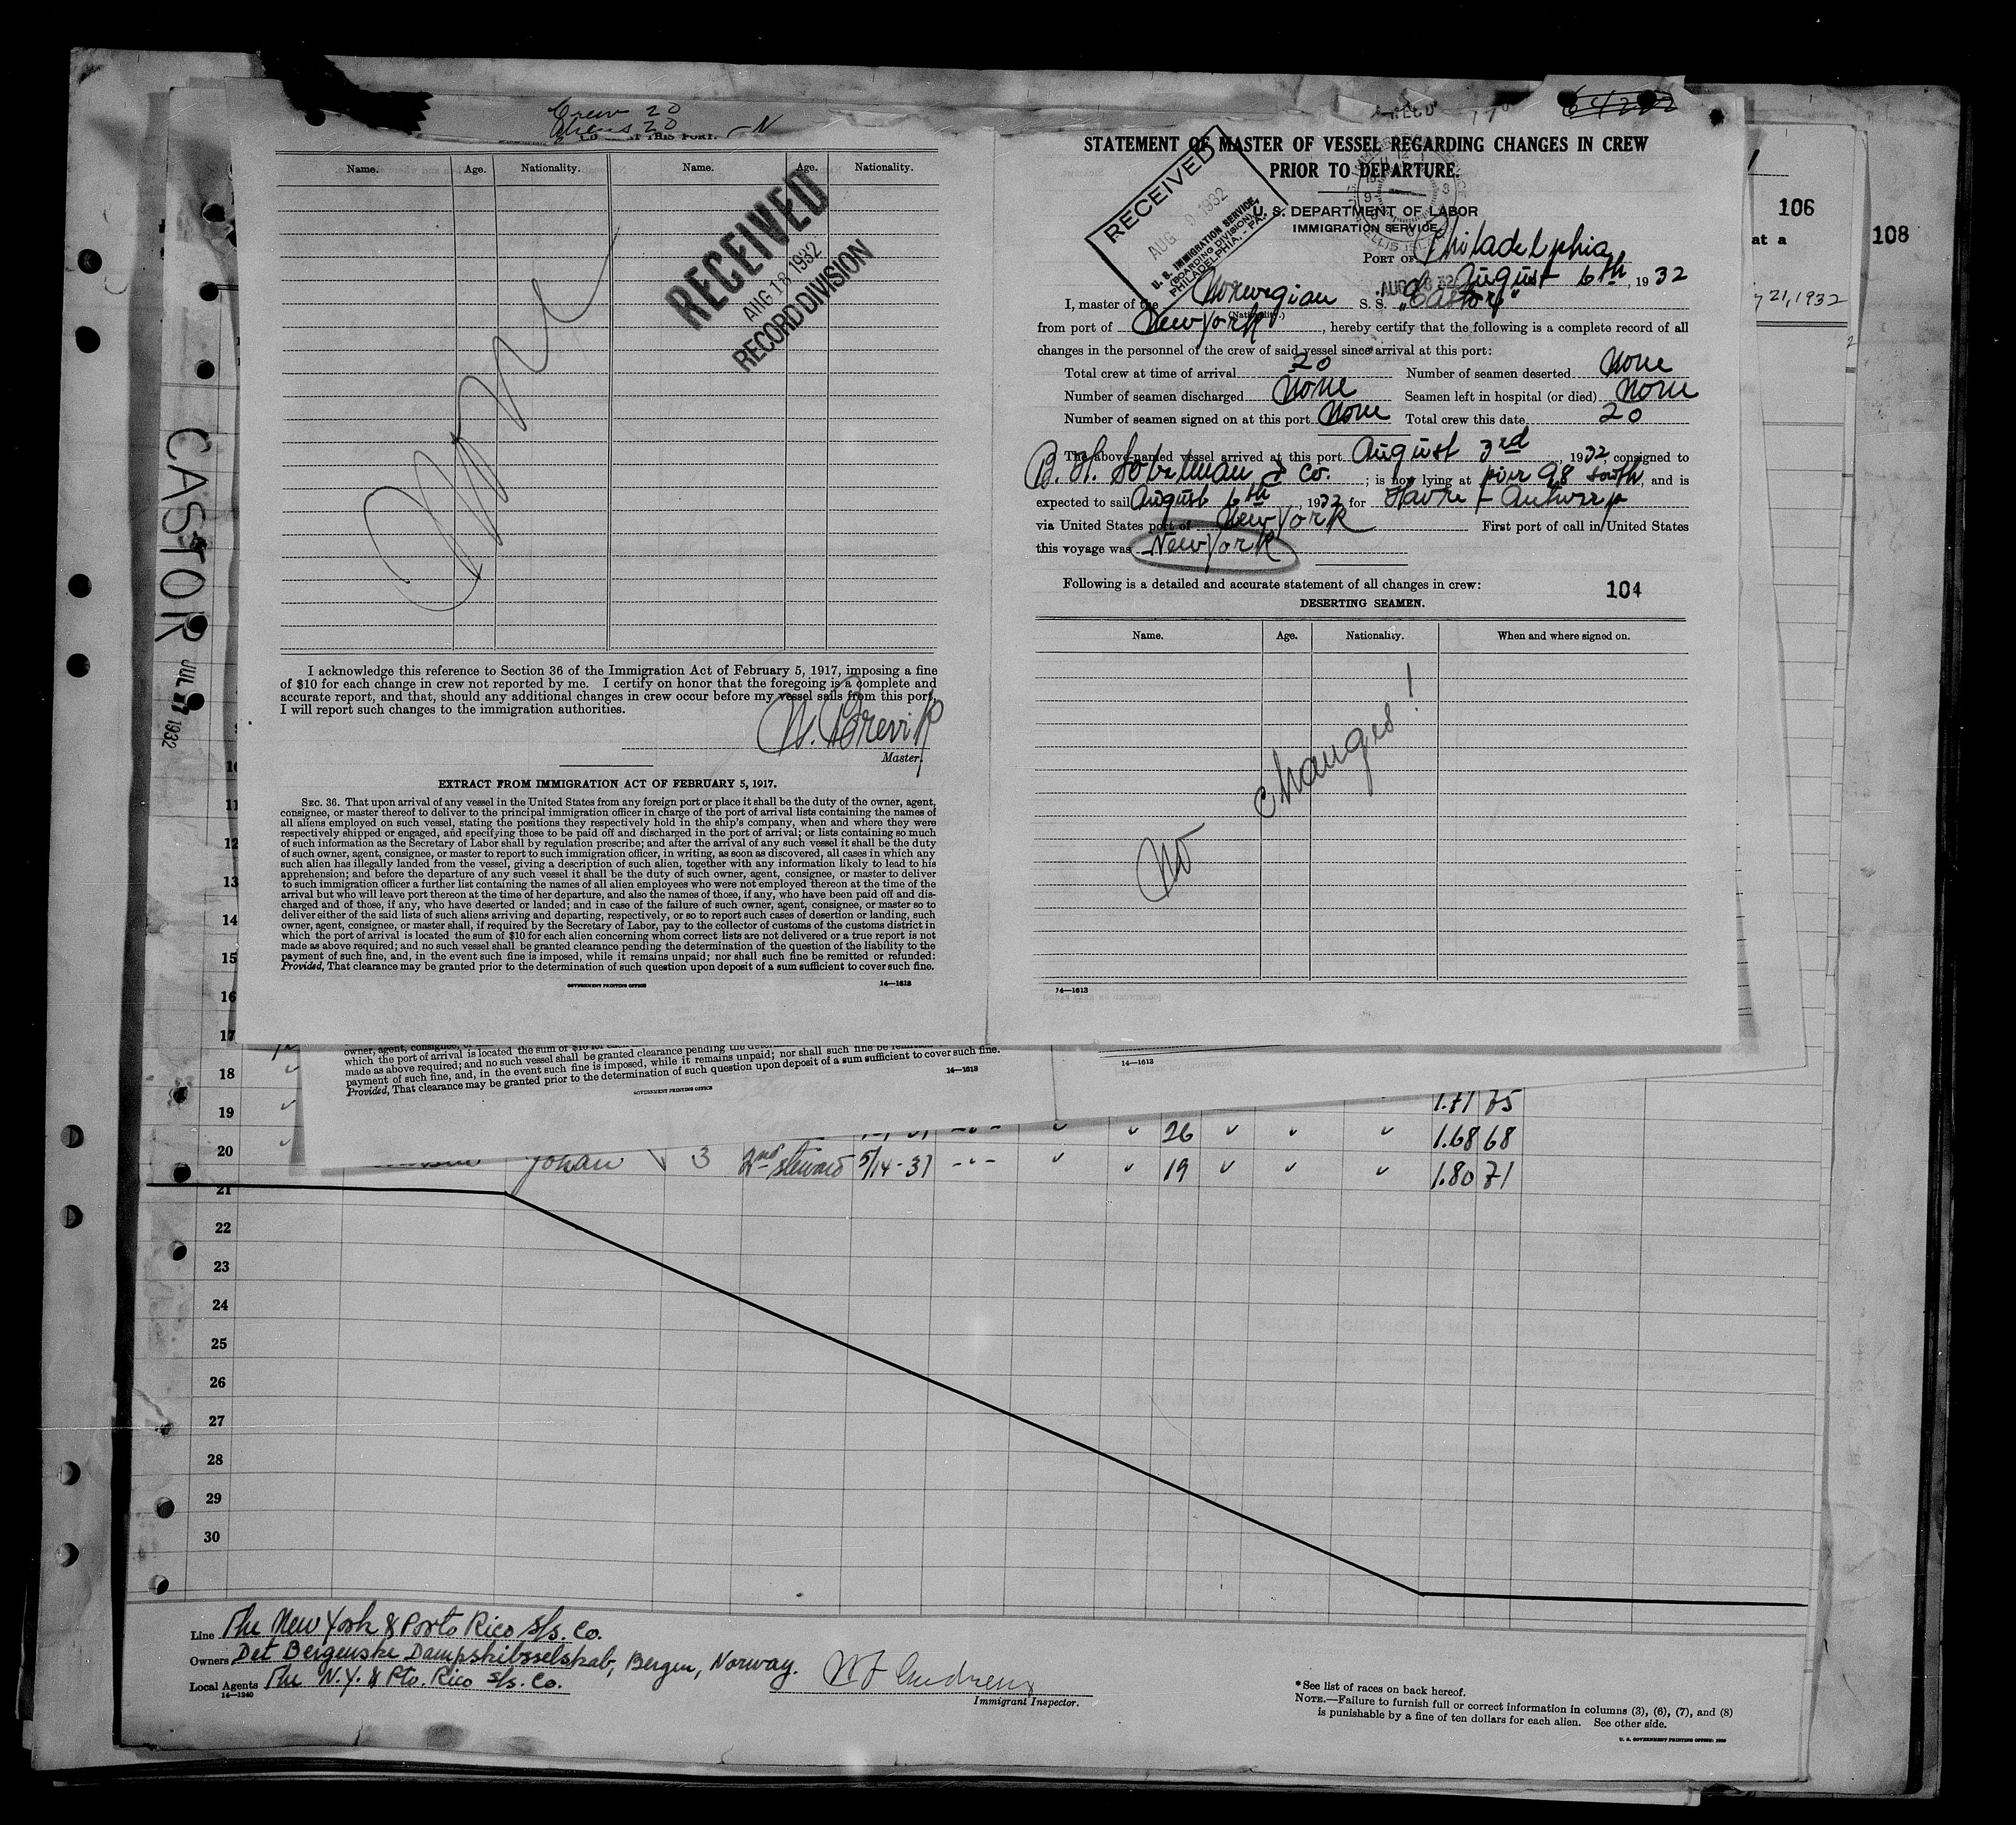 Crew 20
Aliens 20
AT THIS PORT. - N
Name. Age. Nationality. Name. Age. Nationality.
None
RECEIVED
AUG 18 1932
RECORD DIVISION
I acknowledge this reference to Section 36 of the Immigration Act of February 5, 1917, imposing a fine
of $10 for each change in crew not reported by me. I certify on honor that the foregoing is a complete and
accurate report, and that, should any additional changes in crew occur before my vessel sails from this port,
I will report such changes to the immigration authorities.
N. Brevik
Master.
EXTRACT FROM IMMIGRATION ACT OF FEBRUARY 5, 1917.
SEC. 36. That upon arrival of any vessel in the United States from any foreign port or place it shall be the duty of the owner, agent,
consignee, or master thereof to deliver to the principal immigration officer in charge of the port of arrival lists containing the names of
all aliens employed on such vessel, stating the positions they respectively hold in the ship's company, when and where they were
respectively shipped or engaged, and specifying those to be paid off and discharged in the port of arrival; or lists containing so much
of such information as the Secretary of Labor shall by regulation prescribe; and after the arrival of any such vessel it shall be the duty
of such owner, agent, consignee, or master to report to such immigration officer, in writing, as soon as discovered, all cases in which any
such alien has illegally landed from the vessel, giving a description of such alien, together with any information likely to lead to his
apprehension; and before the departure of any such vessel it shall be the duty of such owner, agent, consignee, or master to deliver
to such immigration officer a further list containing the names of all alien employees who were not employed thereon at the time of the
arrival but who will leave port thereon at the time of her departure, and also the names of those, if any, who have been paid off and dis-
charged and of those, if any, who have deserted or landed; and in case of the failure of such owner, agent, consignee, or master so to
deliver either of the said lists of such aliens arriving and departing, respectively, or so to report such cases of desertion or landing, such
owner, agent, consignee, or master shall, if required by the Secretary of Labor, pay to the collector of customs of the customs district in
which the port of arrival is located the sum of $10 for each alien concerning whom correct lists are not delivered or a true report is not
made as above required; and no such vessel shall be granted clearance pending the determination of the question of the liability to the
payment of such fine, and, in the event such fine is imposed, while it remains unpaid; nor shall such fine be remitted or refunded:
Provided, That clearance may be granted prior to the determination of such question upon deposit of a sum sufficient to cover such fine.
GOVERNMENT PRINTING OFFICE 14—1613
64272
STATEMENT OF MASTER OF VESSEL REGARDING CHANGES IN CREW
PRIOR TO DEPARTURE.
RECEIVED
AUG 9 1932
U. S. IMMIGRATION SERVICE,
(BOARDING DIVISION)
PHILADELPHIA, - PA.
U. S. DEPARTMENT OF LABOR
IMMIGRATION SERVICE
PORT OF Philadelphia
August 6th, 1932
I, master of the Norwegian S. S. "Castor"
(Nationality.)
from port of New York, hereby certify that the following is a complete record of all
changes in the personnel of the crew of said vessel since arrival at this port:
Total crew at time of arrival 20 Number of seamen deserted None
Number of seamen discharged None Seamen left in hospital (or died) None
Number of seamen signed on at this port None Total crew this date 20
The above-named vessel arrived at this port August 3rd, 1932, consigned to
B. H. Sobelman & Co.; is now lying at pier 98 South, and is
expected to sail August 6th, 1932 for Havre + Antwerp
via United States port of New York First port of call in United States
this voyage was New York
Following is a detailed and accurate statement of all changes in crew: 104
DESERTING SEAMEN.
Name. Age. Nationality. When and where signed on.
No changes!
14—1613
106
at a
108
21, 1932
CASTOR
JUL 1932
10
11
12
13
14
15
16
17
18
19
20
21
22
23
24
25
26
27
28
29
30
owner, agent, consignee,
which the port of arrival is located the sum of $10 for
made as above required; and no such vessel shall be granted clearance pending the
payment of such fine, and, in the event such fine is imposed, while it remains unpaid; nor shall such fine be
Provided, That clearance may be granted prior to the determination of such question upon deposit of a sum sufficient to cover such fine.
GOVERNMENT PRINTING OFFICE 14—1613
14—1613
1.71 75
26 1.68 68
Johan 3 2nd steward 5/14-31 19 1.80 71
Line The New York & Porto Rico S/s. Co.
Owners Det Bergenske Dampskibsselskab, Bergen, Norway.
Local Agents The N.Y. & Pto. Rico S/s. Co.
14—1240
Immigrant Inspector.
*See list of races on back hereof.
NOTE.—Failure to furnish full or correct information in columns (3), (6), (7), and (8)
is punishable by a fine of ten dollars for each alien. See other side.